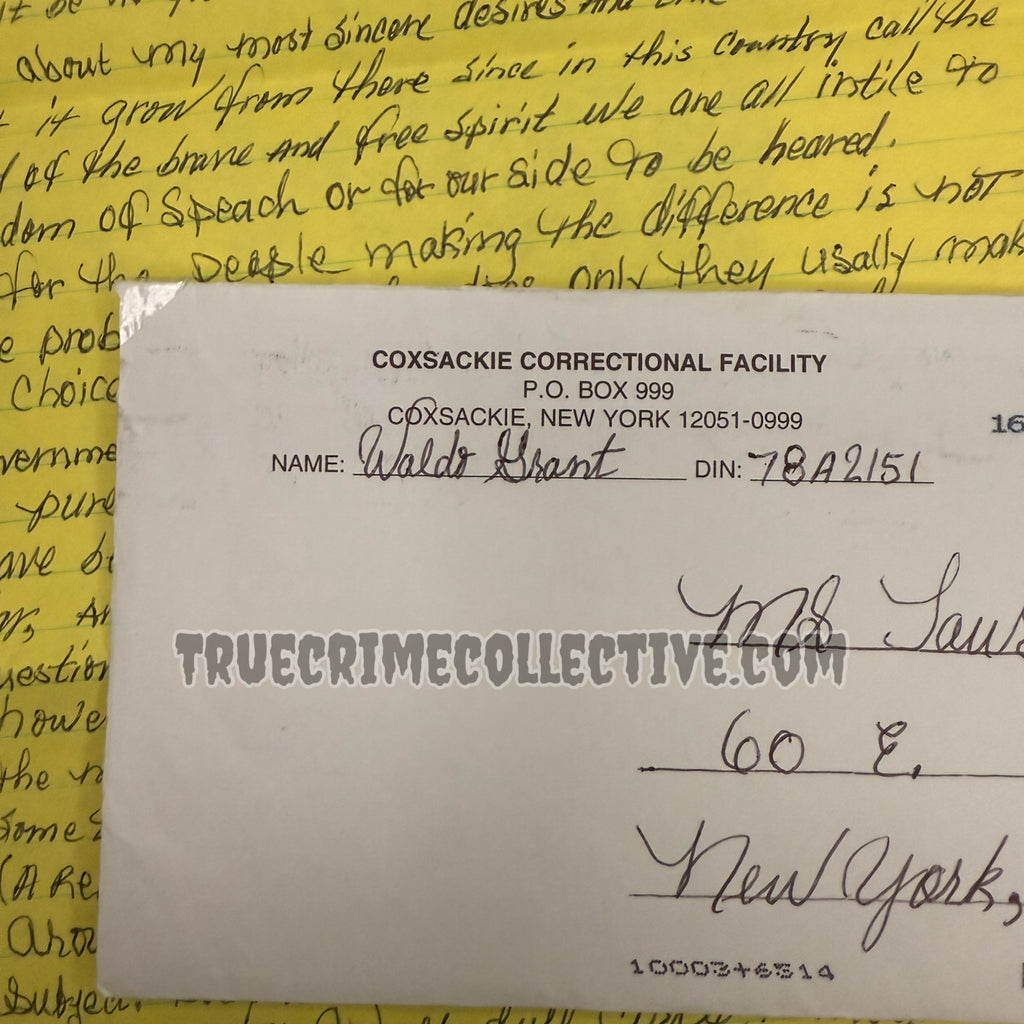 about my most sincere desires and
it grow from there since in this country call the
of the brave and free spirit we are all intile to
dom of Speach or for our side to be heared.
for the People making the difference is not
only they usally mak
e prob
Choice
vernme
pure
ave b
uestion
howe
the n
some
(A Re
Aroo
Subjec
COXSACKIE CORRECTIONAL FACILITY
P.O. BOX 999
COXSACKIE, NEW YORK 12051-0999
16
NAME: Waldo Grant DIN: 78A2151
MS Laws
TRUECRIMECOLLECTIVE.COM
60 E.
New York,
10003+6514